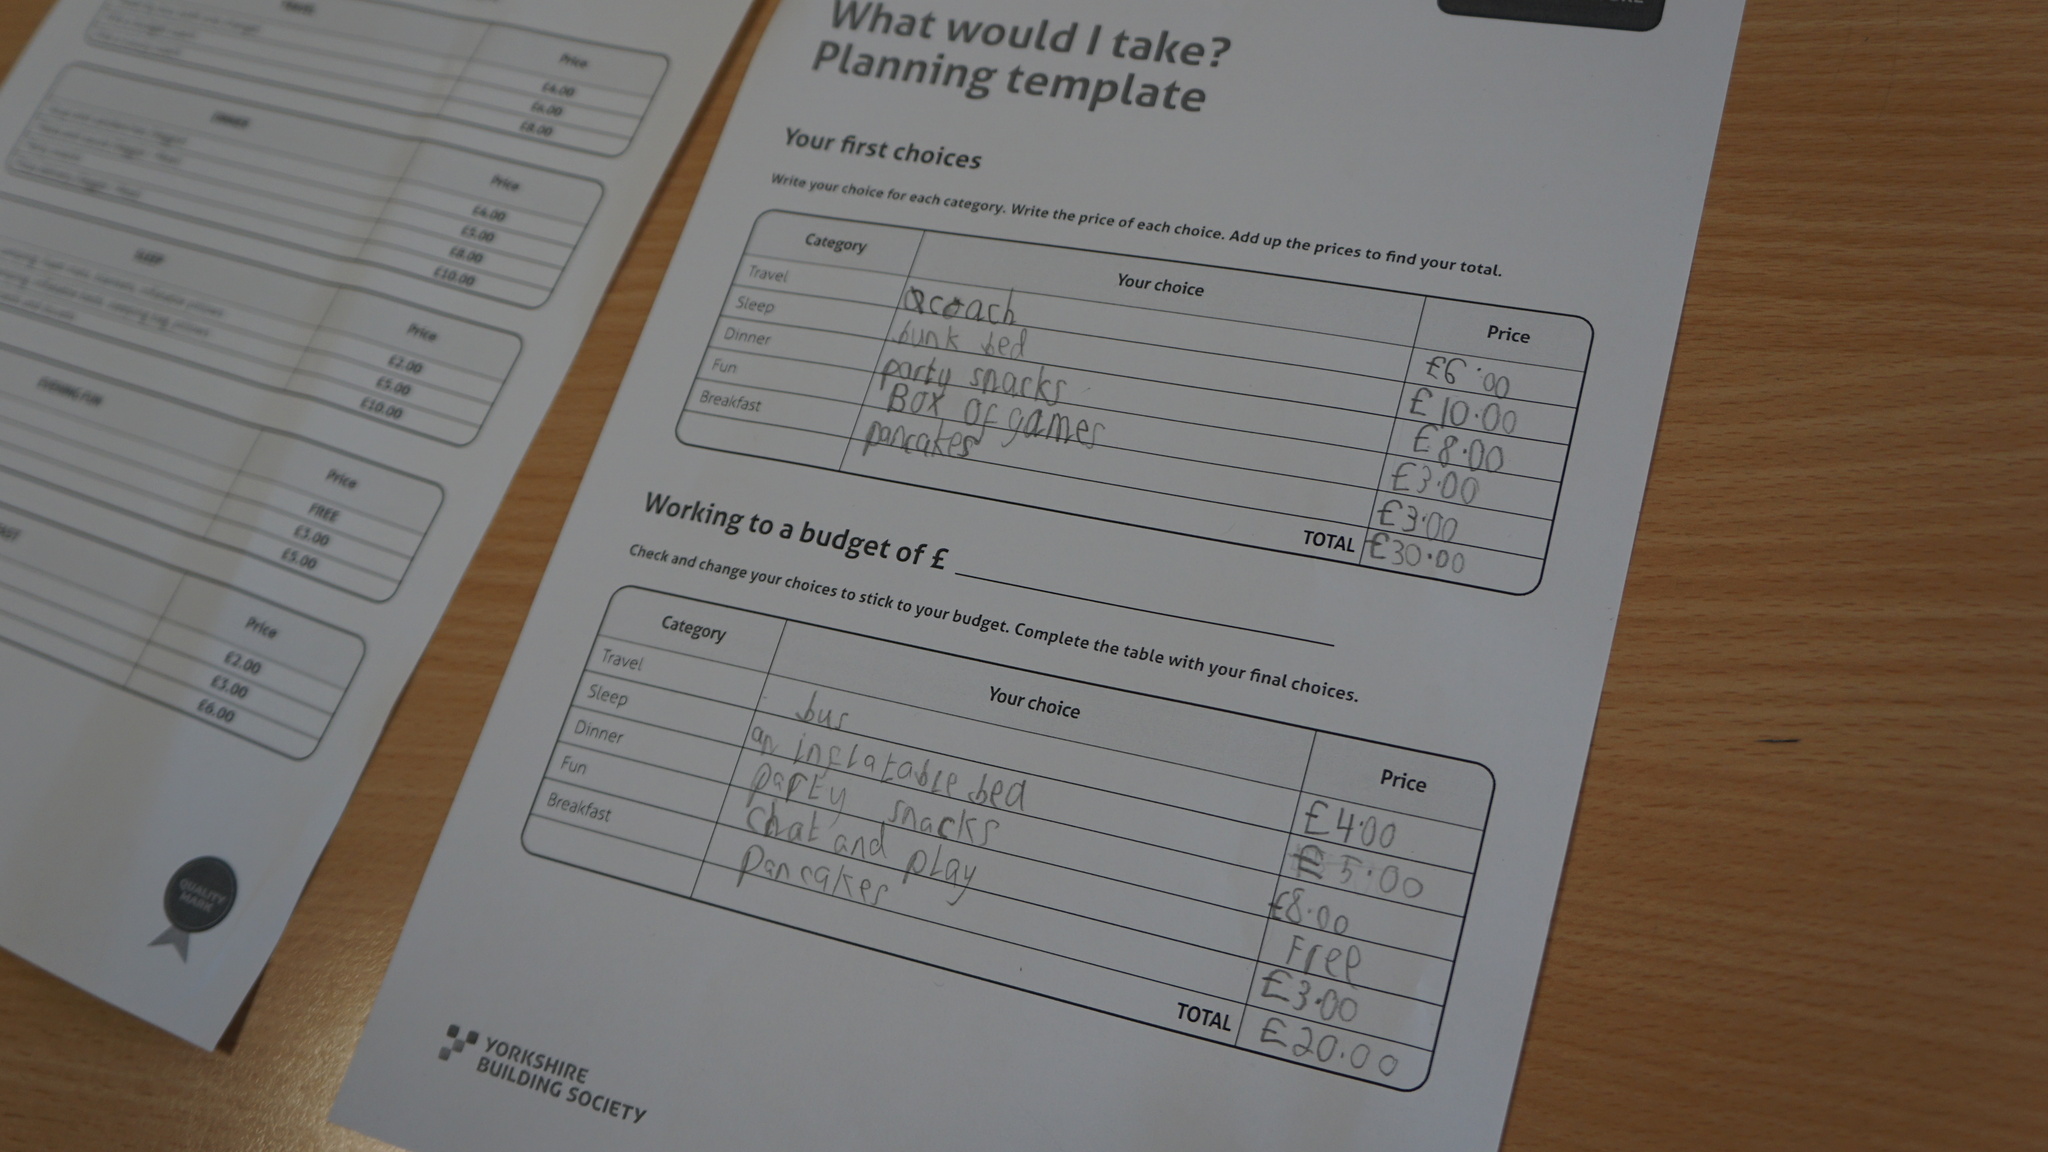 Price
£4.00
£6.00
£8.00
DINNER
Price
£4.00
£5.00
£8.00
£10.00
SLEEP
Price
£2.00
£5.00
£10.00
EVENING FUN
Price
FREE
£3.00
£5.00
Price
£2.00
£3.00
£6.00
QUALITY
MARK
What would I take?
Planning template
Your first choices
Write your choice for each category. Write the price of each choice. Add up the prices to find your total.
Category Your choice Price
Travel acoach £6.00
Sleep bunk bed £10.00
Dinner party snacks £8.00
Fun Box of games £3.00
Breakfast pancakes £3.00
TOTAL £30.00
Working to a budget of £
Check and change your choices to stick to your budget. Complete the table with your final choices.
Category Your choice Price
Travel bus £4.00
Sleep an inflatable bed £5.00
Dinner party snacks £8.00
Fun Chat and play Free
Breakfast pancakes £3.00
TOTAL £20.00
YORKSHIRE
BUILDING SOCIETY